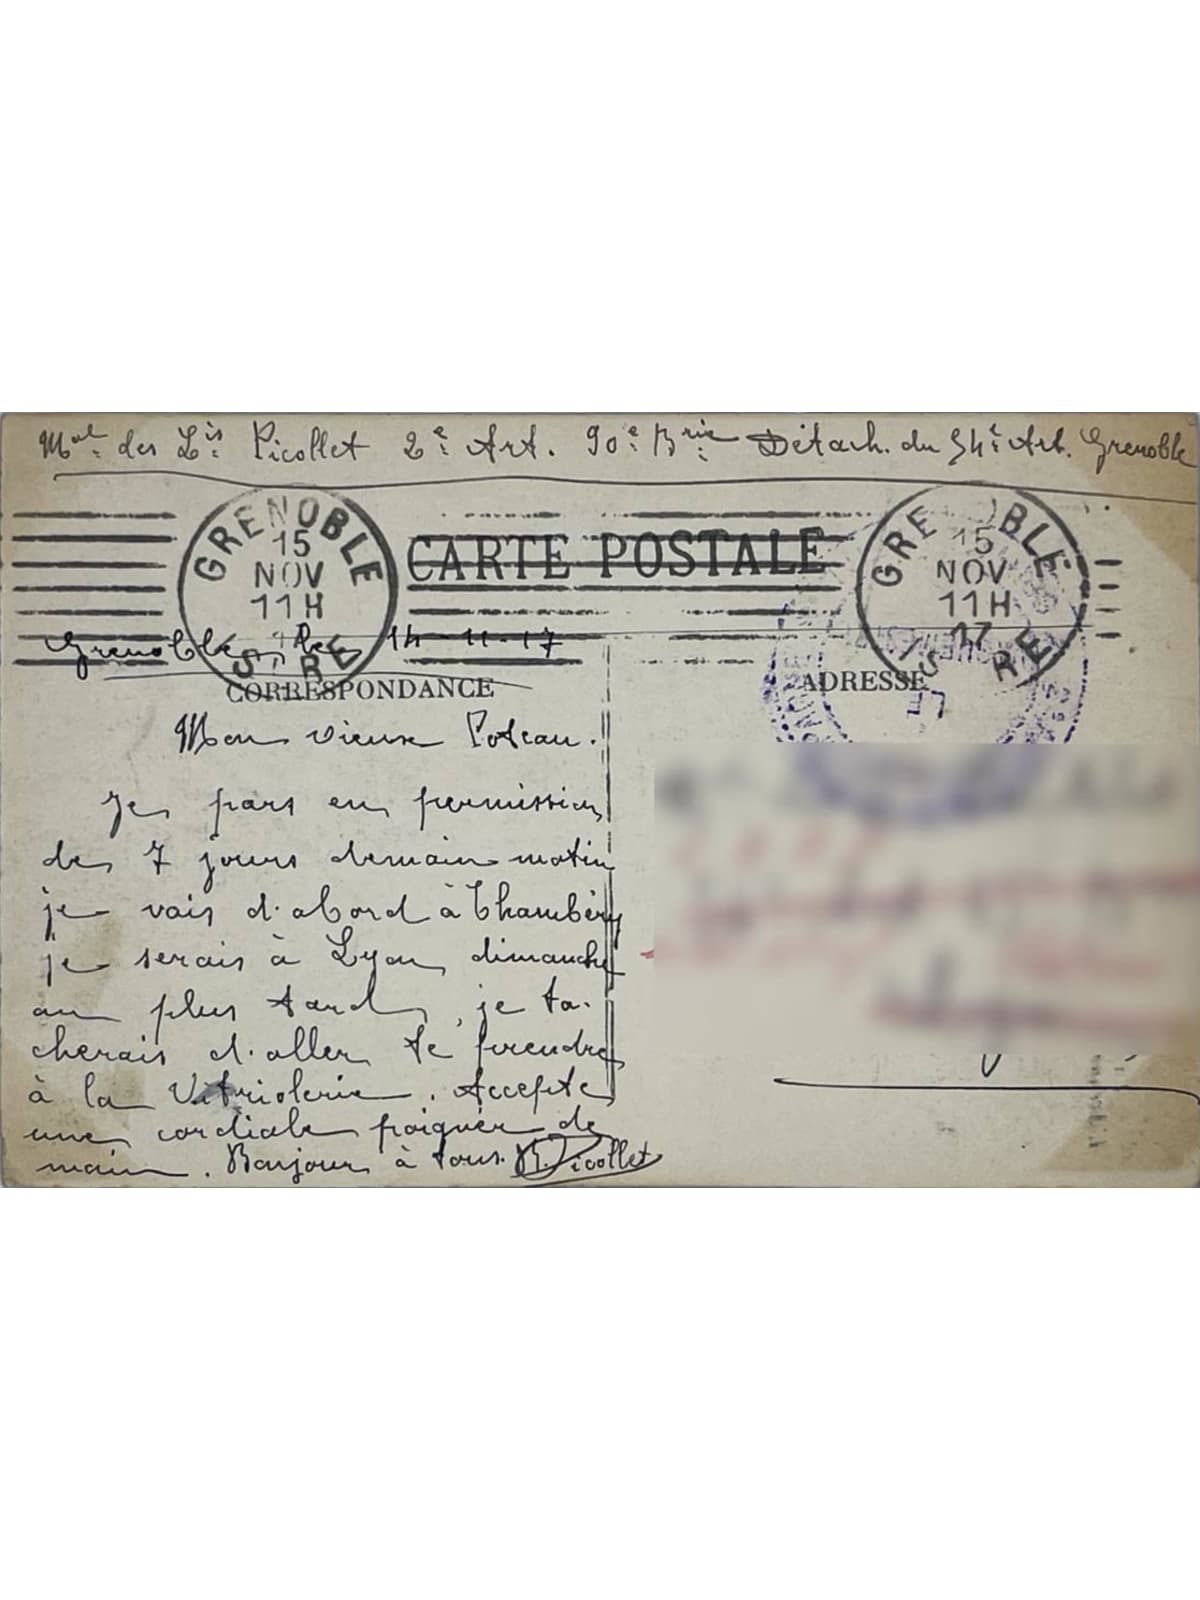 Mal. des Lis. Picollet 2e Art. 90e Brie. Détach. du 54e Art. Grenoble
GRENOBLE
15
NOV
11H
ISÈRE
CARTE POSTALE
GRENOBLE
15
NOV
11H
17
ISÈRE
Grenoble, le 14-11-17
CORRESPONDANCE
ADRESSE
Mon vieux Poteau.
Je pars en permission
de 7 jours demain matin
je vais d'abord à Chambéry
je serais à Lyon dimanche
au plus tard, je ta-
cherais d'aller te prendre
à la Vitriolerie. Accepte
une cordiale poignée de
main. Bonjour à tous. Picollet